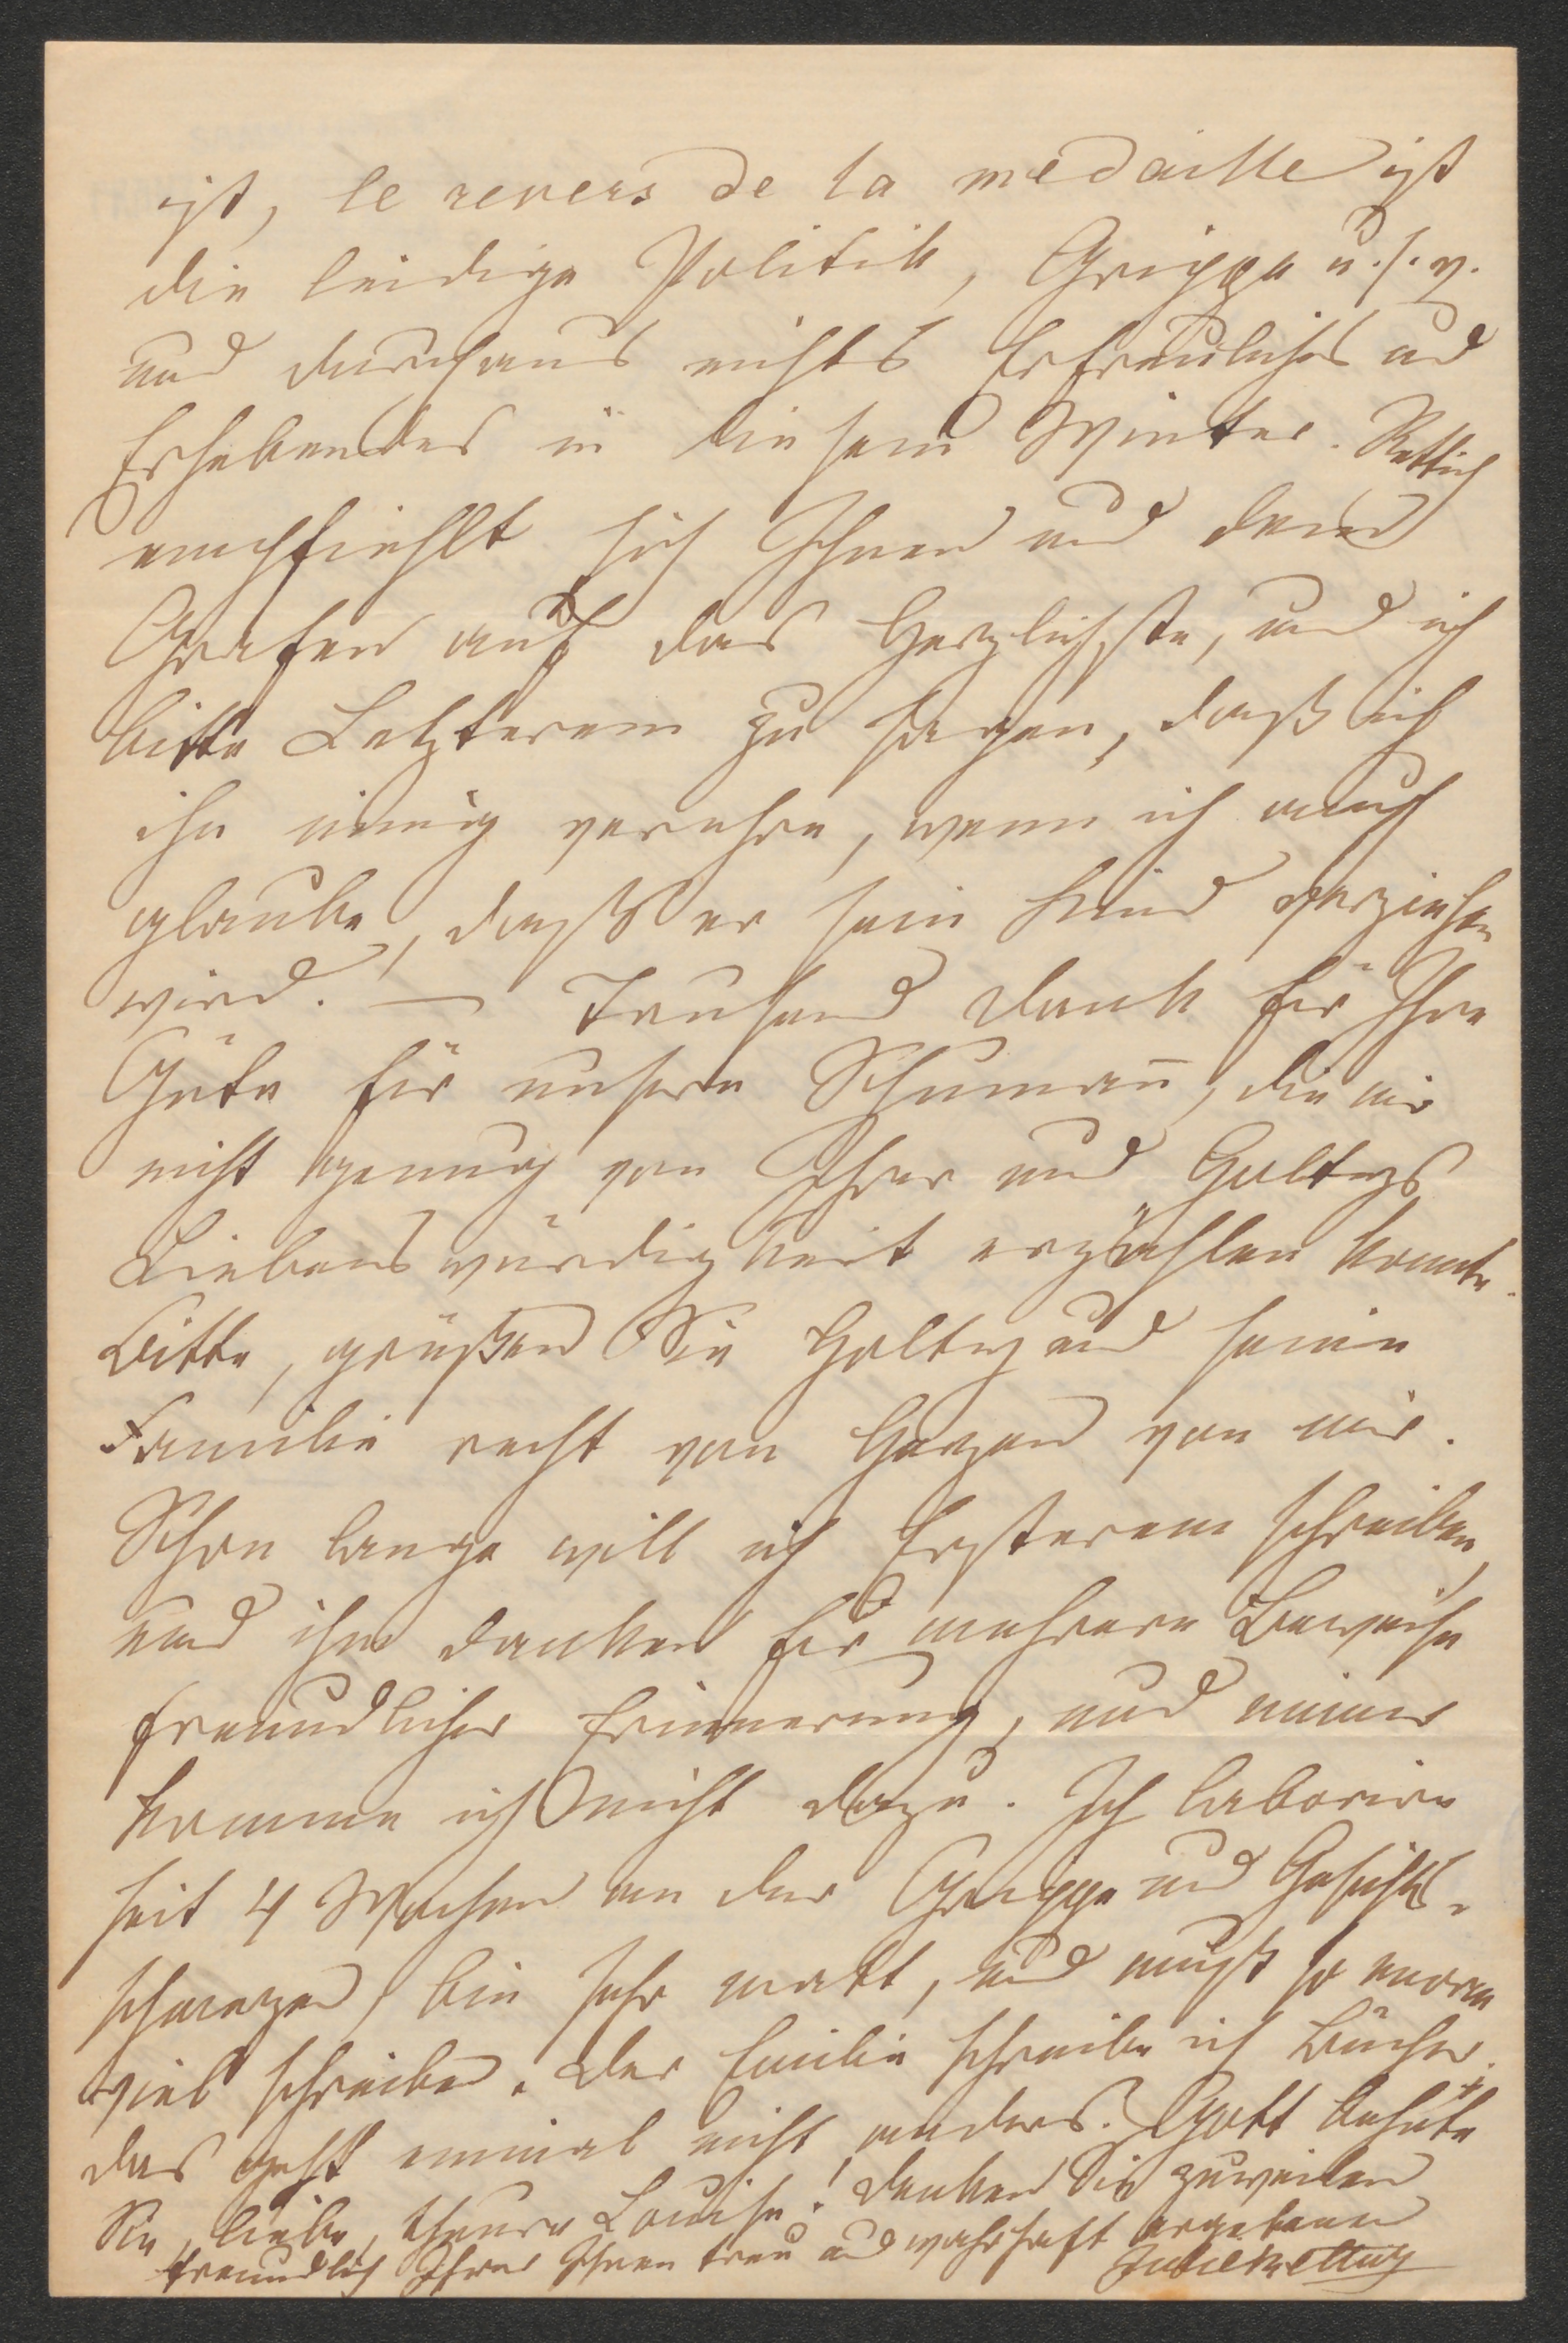 ist, le revers de la médaille ist
die leidige Politik, Grippe u. s. w.
und durchaus nichts Erfreuliches und
Erhebendes in diesem Winter. Rettich
empfiehlt sich Ihnen und dem
Grafen auf das Herzlichste, und ich
bitte Letzterem zu sagen, daß ich
ihn innig verehre, wenn ich auch
glaube, daß er sein Kind verziehen
wird. — Tausend Dank für Ihre
Güte für unsere Schumann, die mir
nicht genug von Ihrer und Holteys
Liebenswürdigkeit erzählen konnte.
Bitte, grüßen Sie Holtey und seine
Familie recht von Herzen von mir.
Schon lange will ich Ersterem schreiben,
und ihm danken für mehrere Beweise
freundlicher Erinnerung, und immer
komme ich nicht dazu. Ich laborire
seit 4 Wochen an der Grippe und Gesichts-
schmerzen, bin sehr matt, und muß so enorm
viel schreiben. Der Emilie schreibe ich Bücher,
das geht einmal nicht anders. Gott behüte
Sie, liebe, theure Louise! Denken Sie zuweilen
freundlich Ihrer Ihnen treu und wahrhaft ergebenen
Julie Rettich